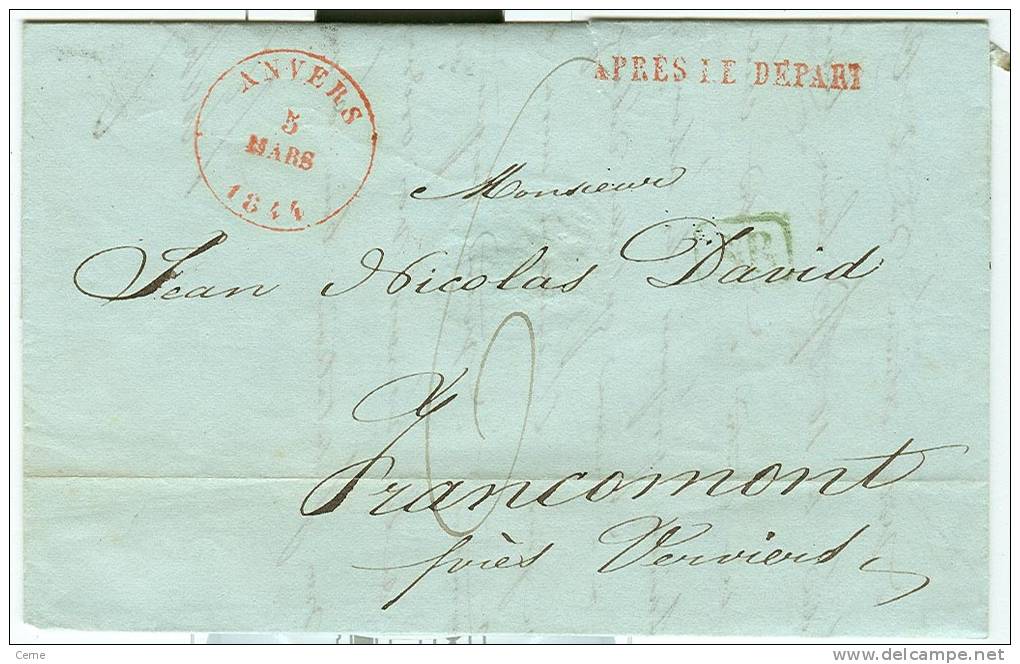 ANVERS
5
MARS
1844
APRÈS LE DÉPART
Monsieur
Jean Nicolas David
6
Francomont
près Verviers
Ceme
delcampe.net